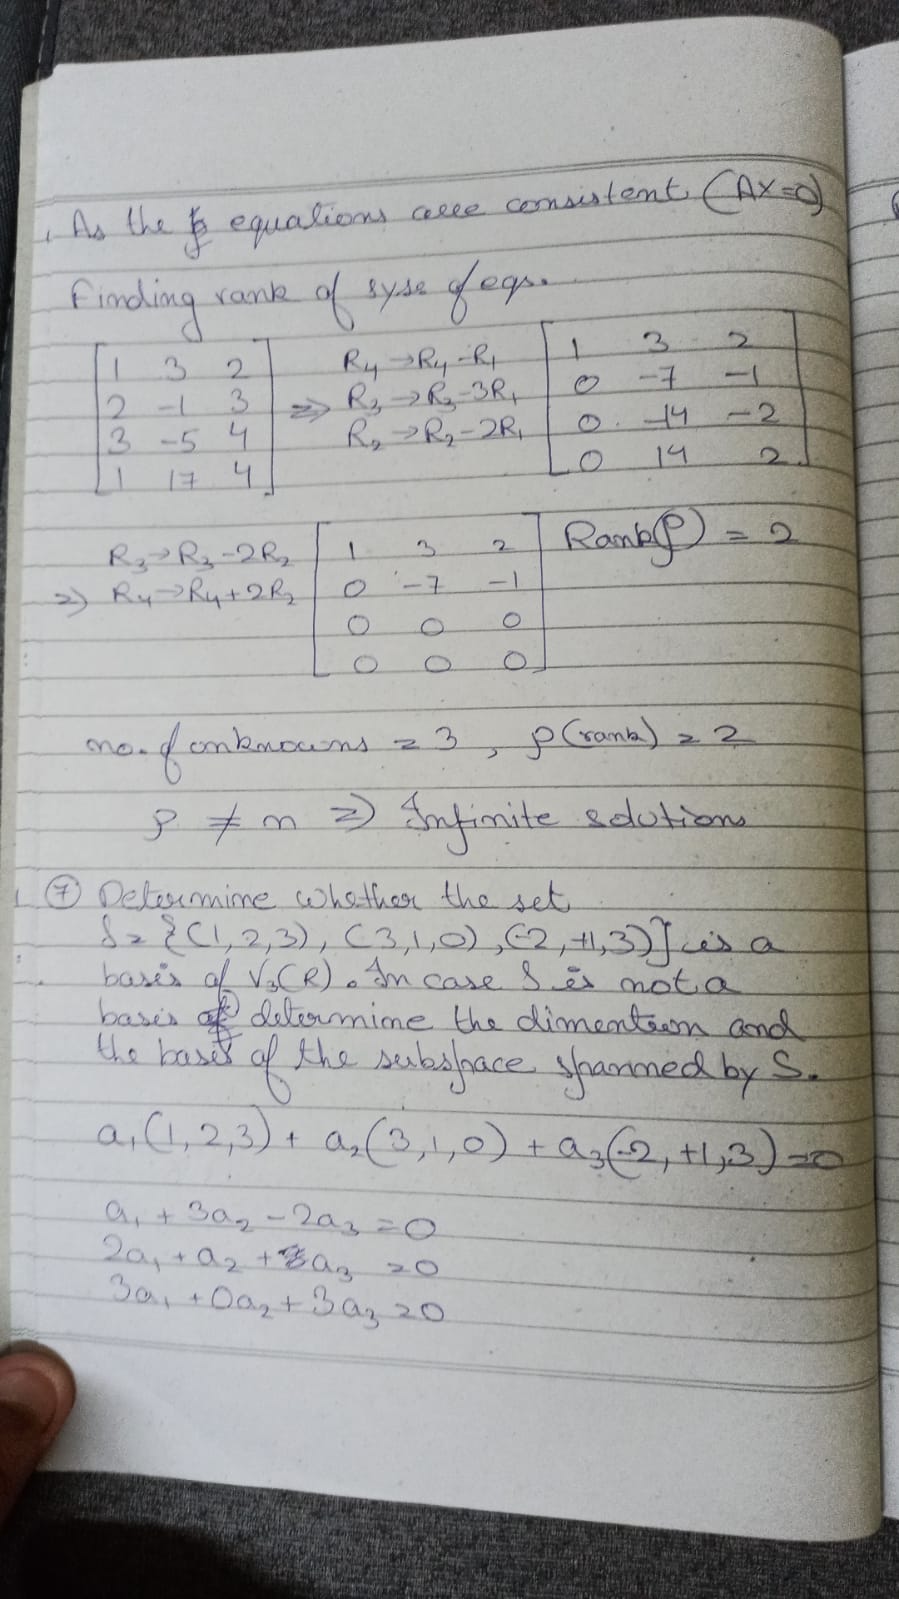 As the equations are consistent (AX=0)
Finding rank of syse of eqs.
[1 3 2; 2 -1 3; 3 -5 4; 1 17 4] => R4→R4-R1 R3→R3-3R1 R2→R2-2R1 [1 3 2; 0 -7 -1; 0 -14 -2; 0 14 2]
=> R3→R3-2R2 R4→R4+2R2 [1 3 2; 0 -7 -1; 0 0 0; 0 0 0] Rank(ρ) = 2
no. of unknowns = 3, ρ(rank) = 2
ρ ≠ n => Infinite solutions
⑦ Determine whether the set
S = {(1,2,3), (3,1,0), (-2,+1,3)} is a
basis of V3(R). In case S is not a
basis determine the dimention and
the basis of the subspace spanned by S.
a1(1,2,3) + a2(3,1,0) + a3(-2,+1,3) = 0
a1 + 3a2 - 2a3 = 0
2a1 + a2 + a3 = 0
3a1 + 0a2 + 3a3 = 0